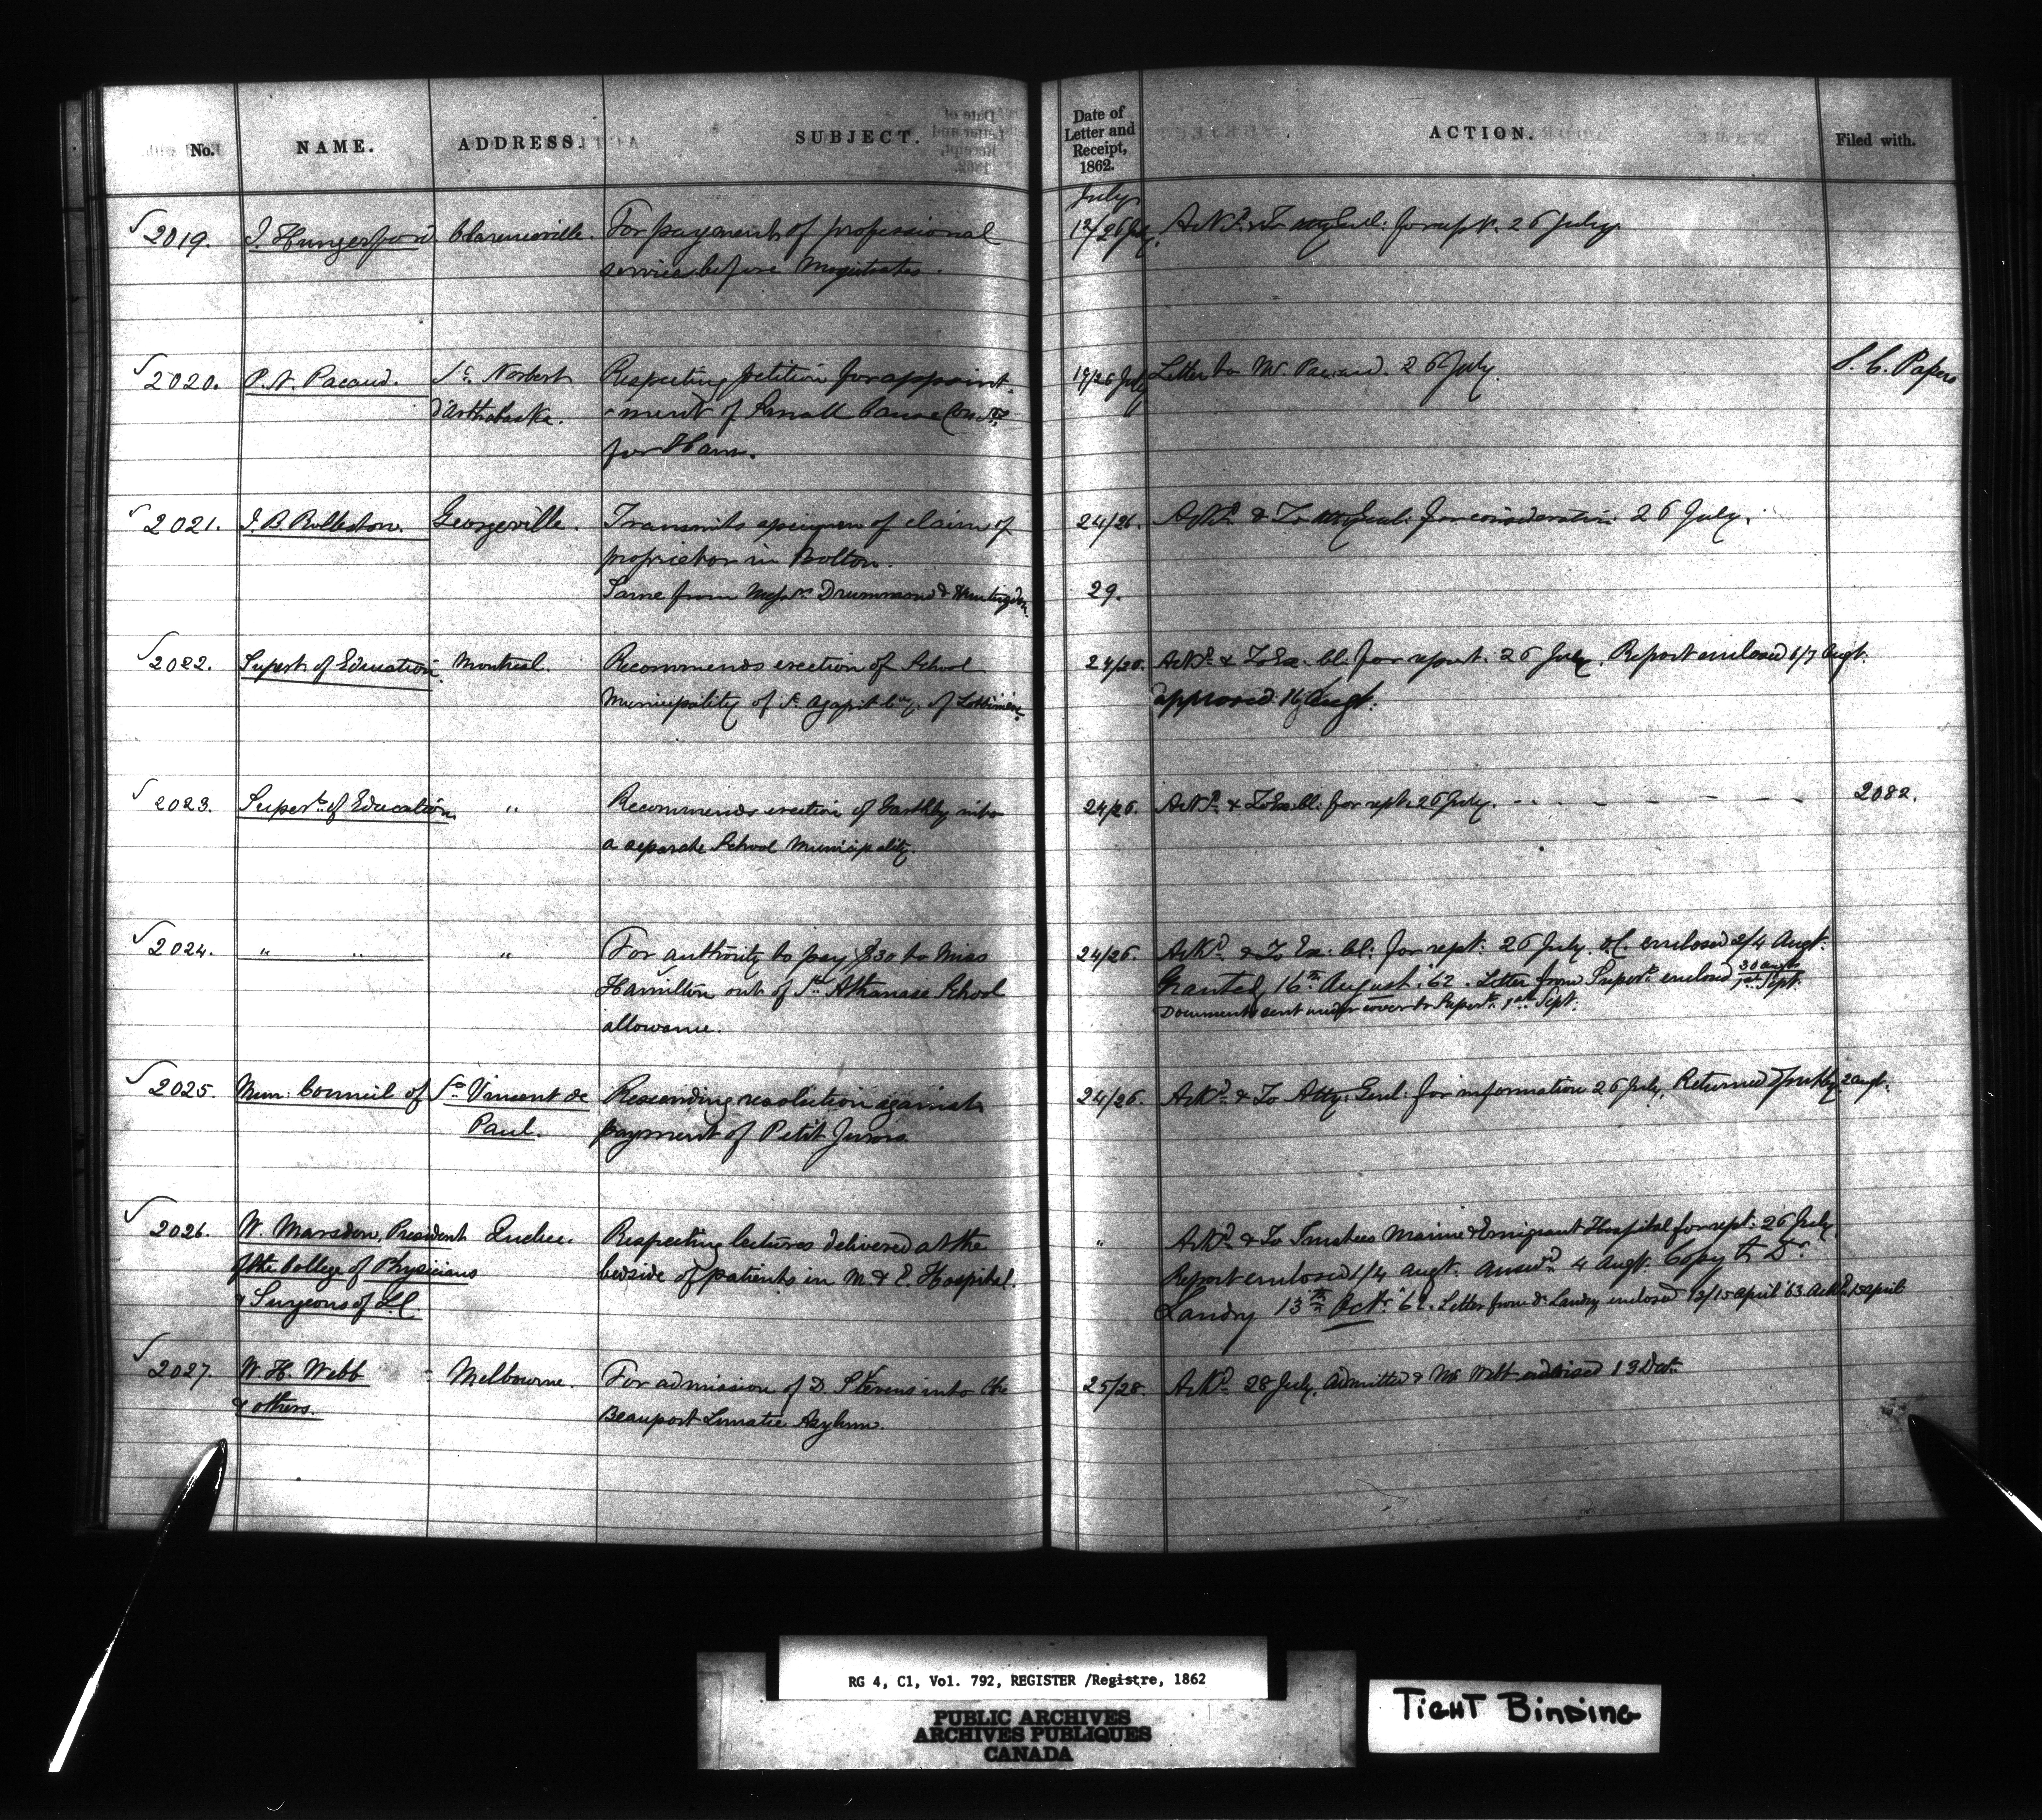 No. NAME. ADDRESS. SUBJECT. Date of Letter and Receipt, 1862. ACTION. Filed with.
July
2019. J. Hungerford Clarenceville. For payment of professional 12/26 July. Ackd. & To Atty Genl: for rept. 26 July.
services before Magistrates.
2020. P. N. Pacaud. St. Norbert Respecting petition for appoint- 19/26 July Letter to Mr. Pacaud. 26 July. S. C. Papers
d'Arthabaska. -ment of Small Cause Comrs.
for Ham.
2021. Georgeville. Transmits specimen of claim of 24/26. Ackd. & To Atty Genl: for consideration 26 July.
proprietor in Bolton.
Same from Messrs. Drummond & Huntingdon. 29.
2022. Supert. of Education. Montreal. Recommends erection of School 24/26. Ackd. & To Ex. Cl. for report. 26 July. Report enclosed 6/7 Augt.
Municipality of St. Agapit Cy. of Lotbiniere. approved 16 Augt.
2023. Supert. of Education. " Recommends erection of Garthby into 24/26. Ackd. & To Ex. Cl: for rept. 26 July. - - - - - - 2082.
a separate School Municipality.
2024. " " " For authority to pay $30 to Miss 24/26. Ackd. & To Ex: Cl: for rept: 26 July. O.C. enclosed 2/4 Augt.
Hamilton out of St. Athanase School Granted 16th August. '62. Letter from Supert. enclosed 30 Augt 1st Sept.
allowance. Documents sent under cover to Supert. 1st Sept.
2025. Mun: Council of St. Vincent de Rescinding resolution against 24/26. Ackd. & To Atty: Genl: for information 26 July. Returned 2 Augt.
Paul. payment of Petit Jurors.
2026. W. Marsden, President Quebec. Respecting lectures delivered at the " Ackd. & To Trustees Marine & Emigrant Hospital for rept: 26 July.
of the College of Physicians bedside of patients in M. & E. Hospital. Report enclosed 1/4 Augt. Answd. 4 Augt. Copy to Dr.
& Surgeons of L.C. Landry 13th Oct. '62. Letter from Dr. Landry enclosed 13/15 April '63 Ackd. 15 April
2027. W. H. Webb Melbourne. For admission of D. Stevens into the 25/28. Ackd. 28 July. Admitted & Mr Webb advised 13
& others. Beauport Lunatic Asylum.
RG 4, C1, Vol. 792, REGISTER /Registre, 1862
PUBLIC ARCHIVES
ARCHIVES PUBLIQUES
CANADA
TIGHT BINDING